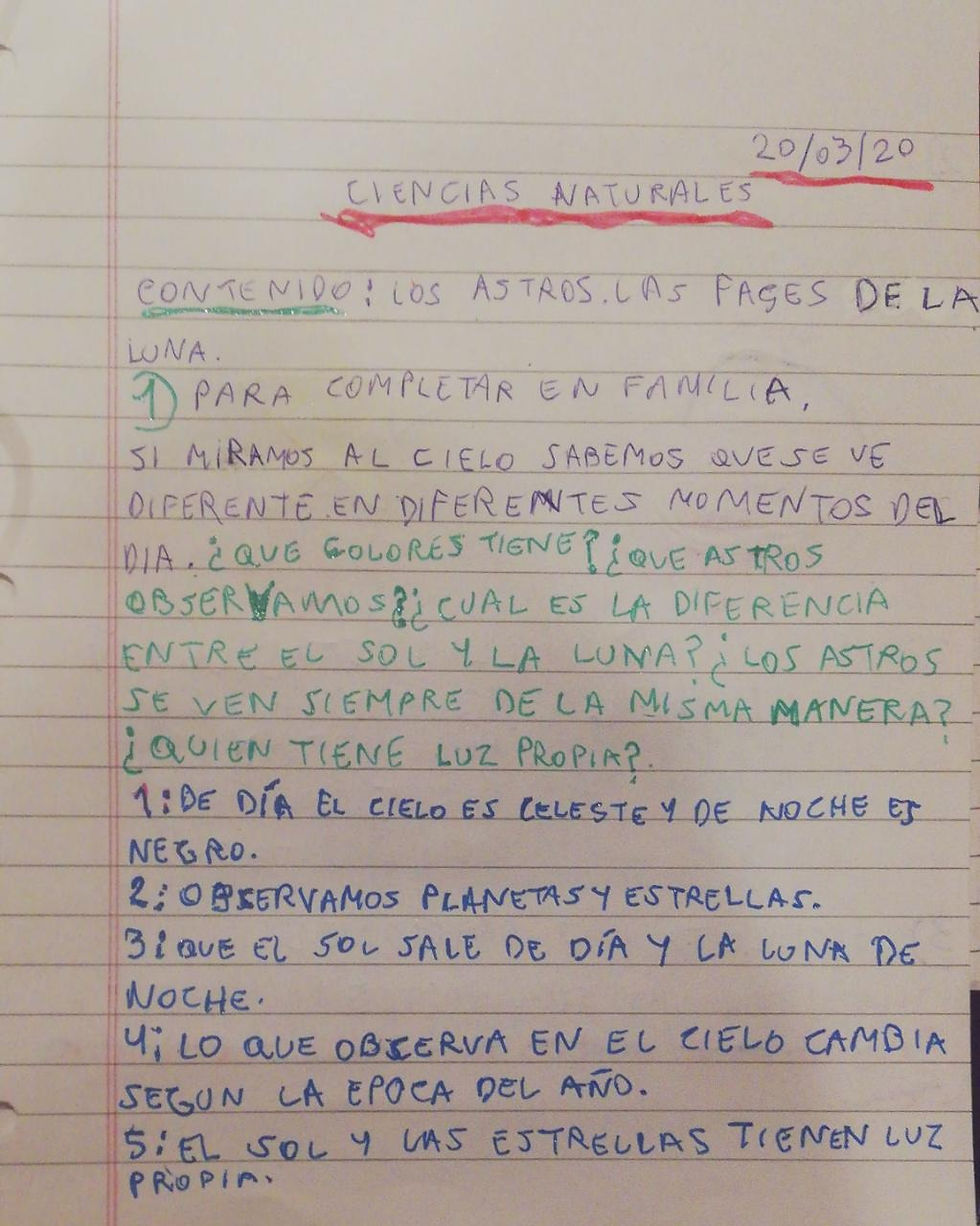 20/03/20
CIENCIAS NATURALES
CONTENIDO: LOS ASTROS. LAS FASES DE LA
LUNA.
1) PARA COMPLETAR EN FAMILIA,
SI MIRAMOS AL CIELO SABEMOS QUE SE VE
DIFERENTE EN DIFERENTES MOMENTOS DEL
DIA. ¿QUE COLORES TIENE? ¿QUE ASTROS
OBSERVAMOS? ¿CUAL ES LA DIFERENCIA
ENTRE EL SOL Y LA LUNA? ¿LOS ASTROS
SE VEN SIEMPRE DE LA MISMA MANERA?
¿QUIEN TIENE LUZ PROPIA?.
1: DE DÍA EL CIELO ES CELESTE Y DE NOCHE ES
NEGRO.
2: OBSERVAMOS PLANETAS Y ESTRELLAS.
3: QUE EL SOL SALE DE DÍA Y LA LUNA DE
NOCHE.
4: LO QUE OBSERVA EN EL CIELO CAMBIA
SEGUN LA EPOCA DEL AÑO.
5: EL SOL Y LAS ESTRELLAS TIENEN LUZ
PROPIA.